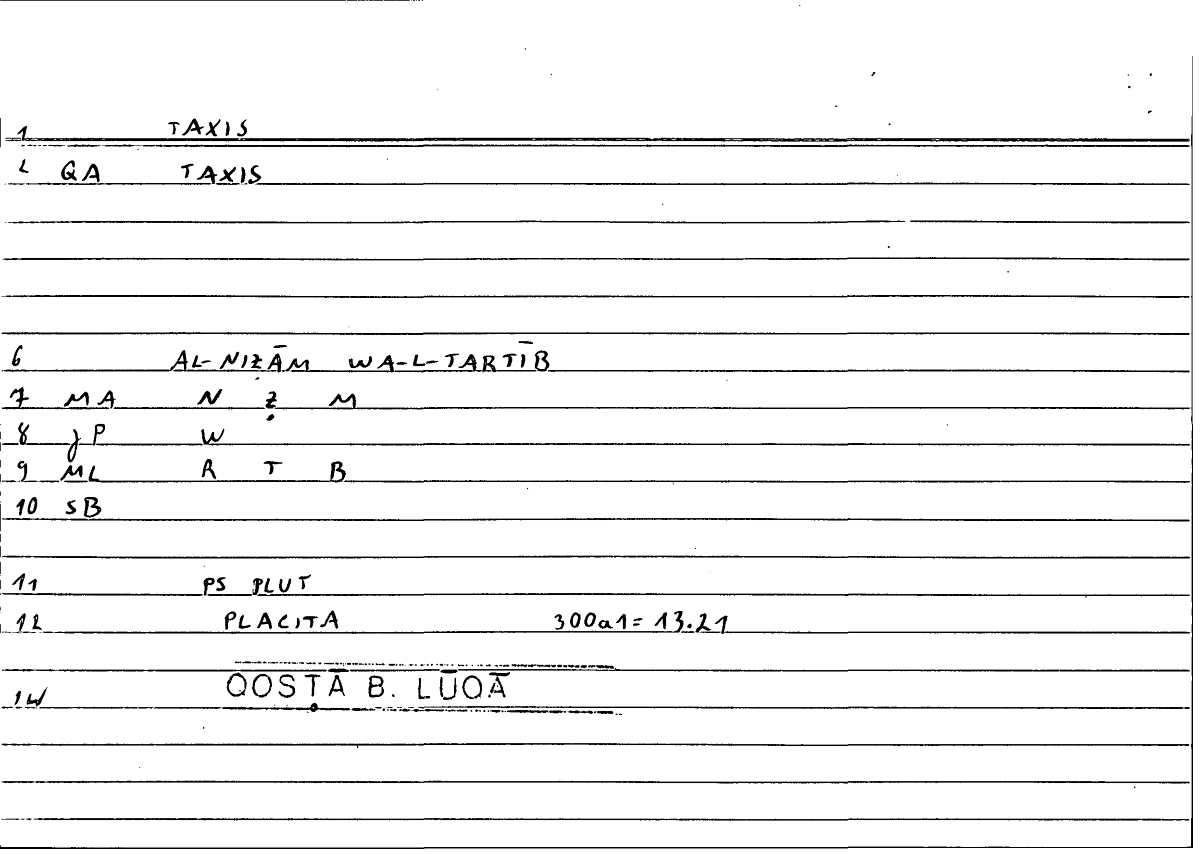 1 TAXIS
2 QA TAXIS
6 AL-NIẒĀM WA-L-TARTĪB
7 MA N Ẓ M
8 JP W
9 ML R T B
10 SB
11 PS PLUT
12 PLACITA 300a1= 13.21
QOSṬĀ B. LŪQĀ